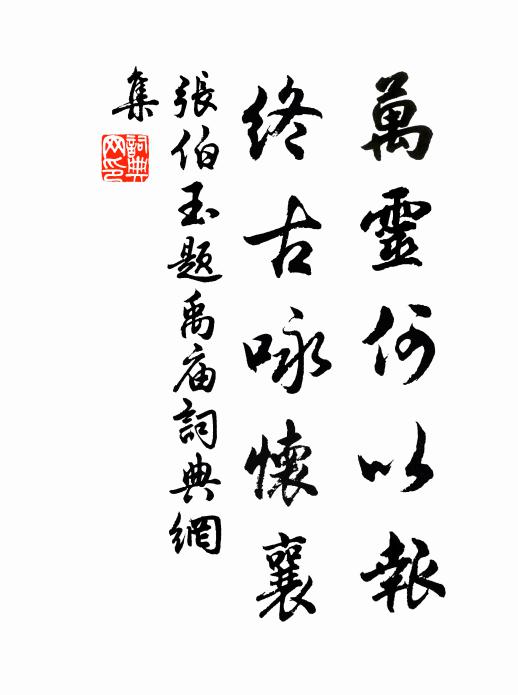 萬靈何以報
終古咏懷襄
張伯玉题禹庙詞典網
集
詞典
网印